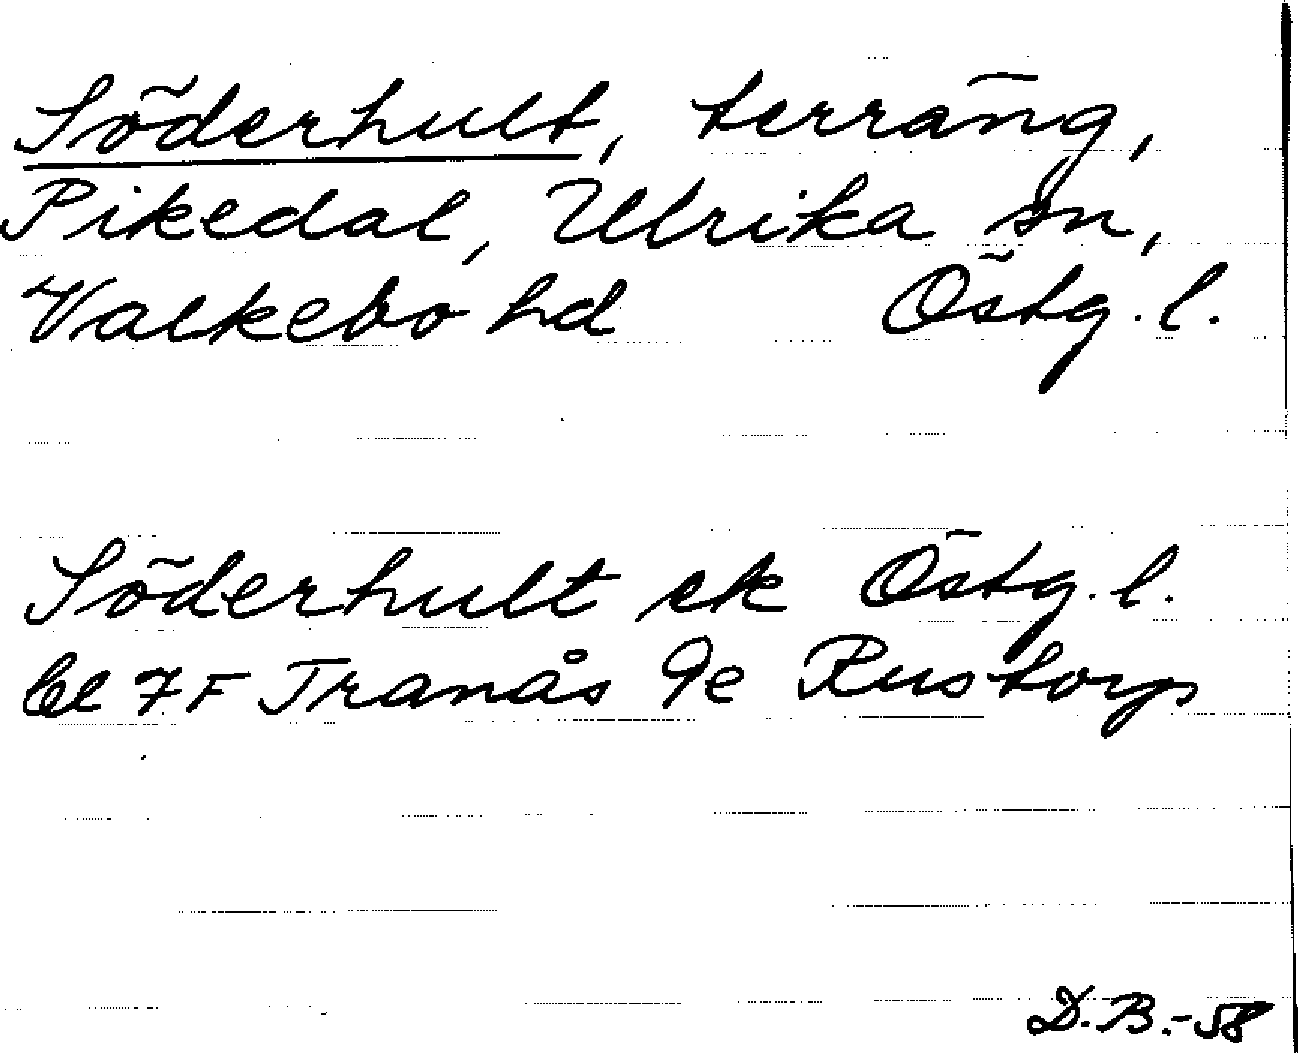 Söderhult, terräng,
Pikedal, Ulrika sn,
Valkebo hd Östg. l.
Söderhult ek Östg. l.
bl 7F Tranås 9e Rustorp
D.B.-58